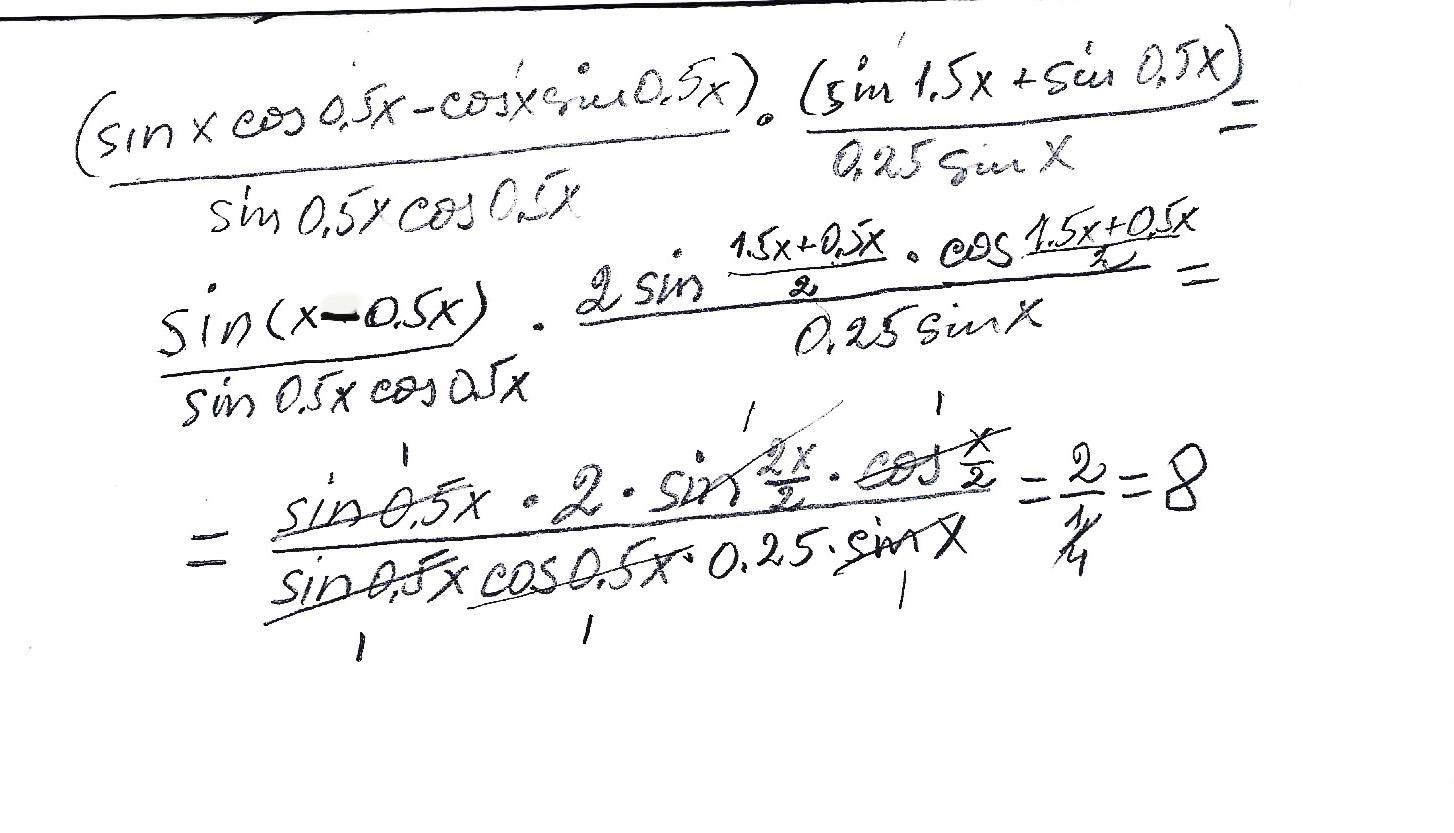 (sin x cos 0,5x - cos x sin 0,5x) / (sin 0,5x cos 0,5x) · (sin 1.5x + sin 0,5x) / (0,25 sin x) =
sin(x - 0.5x) / (sin 0.5x cos 0.5x) · (2 sin (1.5x+0,5x)/2 · cos (1.5x+0,5x)/2) / (0.25 sin x) =
= (sin 0,5x · 2 · sin 2x/2 · cos x/2) / (sin 0,5x cos 0.5x · 0.25 · sin x) = 2 / (1/4) = 8